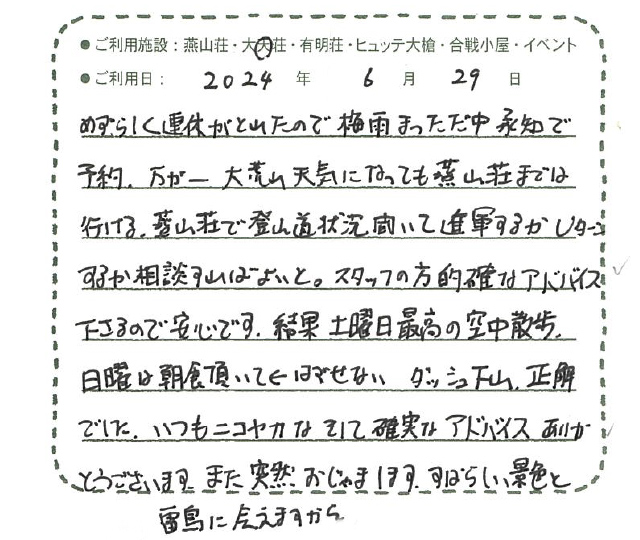 ●ご利用施設：燕山荘・大天荘・有明荘・ヒュッテ大槍・合戦小屋・イベント
●ご利用日： 2024 年 6 月 29 日
めずらしく連休がとれたので 梅雨まっただ中 承知で
予約、万が一 大荒れ天気になっても燕山荘までは
行ける。燕山荘で登山道状況聞いて進軍するかUターン
するか相談すればよいと。スタッフの方的確なアドバイス
下さるので安心です。結果 土曜日最高の空中散歩。
日曜は朝食頂いて ダッシュ下山。正解
でした。いつもニコヤカな そして確実なアドバイス ありが
とうございます。また突然 おじゃまします。すばらしい景色と
雷鳥に会えますから